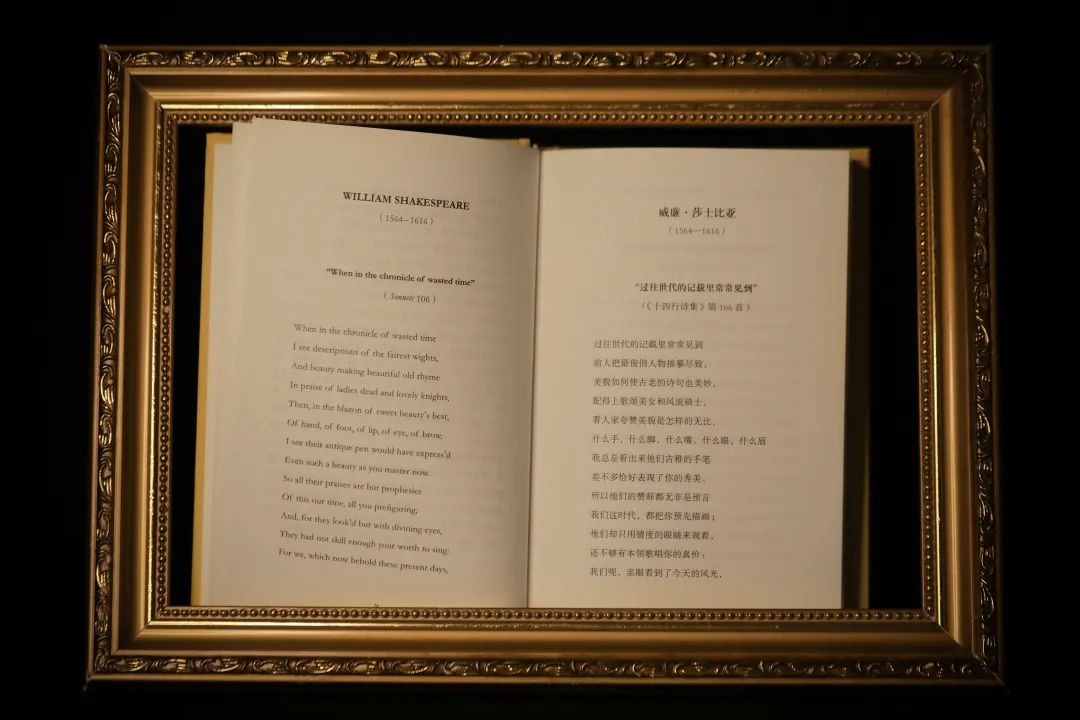 WILLIAM SHAKESPEARE
(1564–1616)
“When in the chronicle of wasted time”
(Sonnets 106)
When in the chronicle of wasted time
I see descriptions of the fairest wights,
And beauty making beautiful old rhyme
In praise of ladies dead and lovely knights,
Then, in the blazon of sweet beauty's best,
Of hand, of foot, of lip, of eye, of brow,
I see their antique pen would have express'd
Even such a beauty as you master now.
So all their praises are but prophesies
Of this our time, all you prefiguring;
And, for they look'd but with divining eyes,
They had not skill enough your worth to sing:
For we, which now behold these present days,
威廉·莎士比亚
(1564—1616)
“过往世代的记载里常常见到”
(《十四行诗集》第 106 首)
过往世代的记载里常常见到
前人把最俊俏人物描摹尽致,
美貌如何使古老的诗句也美妙,
配得上歌颂美女和风流骑士,
看人家夸赞美貌是怎样的无比,
什么手,什么脚,什么嘴,什么眼,什么眉
我总是看出来他们古雅的手笔
差不多恰好表现了你的秀美。
所以他们的赞辞都无非是预言
我们这时代,都把你预先描画;
他们却只用猜度的眼睛来观看,
还不够有本领歌唱你的真价:
我们呢,亲眼看到了今天的风光,